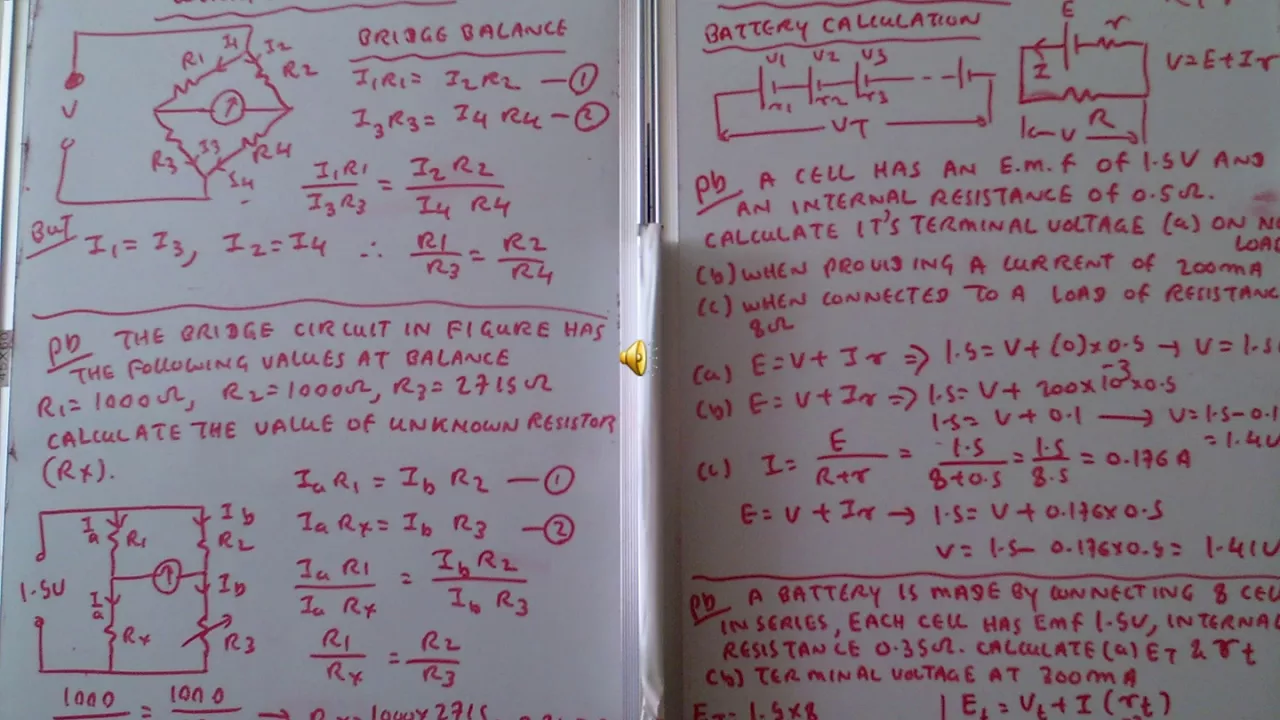 BRIDGE BALANCE
I1 I2
R1 R2
V
R3 I3 R4
I4
I1R1 = I2R2 —①
I3R3 = I4 R4 —②
I1R1 / I3R3 = I2 R2 / I4 R4
But
I1 = I3, I2 = I4 ∴ R1/R3 = R2/R4
Pb THE BRIDGE CIRCUIT IN FIGURE HAS
THE FOLLOWING VALUES AT BALANCE
R1 = 1000Ω, R2 = 1000Ω, R3 = 2715Ω
CALCULATE THE VALUE OF UNKNOWN RESISTOR
(Rx).
Ia R1 = Ib R2 —①
Ia Rx = Ib R3 —②
Ia R1 / Ia Rx = Ib R2 / Ib R3
R1 / Rx = R2 / R3
Ia Ib
R1 R2
1.5V
Ia Ib
Rx R3
1000 = 1000
BATTERY CALCULATION
V1 V2 V3
r1 r2 r3
VT
E r
I
R
V
V = E + Ir
Pb A CELL HAS AN E.m.f OF 1.5V AND
AN INTERNAL RESISTANCE OF 0.5Ω.
CALCULATE IT'S TERMINAL VOLTAGE (a) ON NO
LOAD
(b) WHEN PROVIDING A CURRENT OF 200mA
(c) WHEN CONNECTED TO A LOAD OF RESISTANC
8Ω
(a) E = V + Ir ⇒ 1.5 = V + (0) x 0.5 → V = 1.5
(b) E = V + Ir ⇒ 1.5 = V + 200 x 10^-3 x 0.5
1.5 = V + 0.1 → V = 1.5 - 0.1
= 1.4V
(c) I = E / R+r = 1.5 / 8+0.5 = 1.5 / 8.5 = 0.176 A
E = V + Ir → 1.5 = V + 0.176 x 0.5
V = 1.5 - 0.176 x 0.5 = 1.41V
Pb A BATTERY IS MADE BY CONNECTING 8 CEL
IN SERIES, EACH CELL HAS Emf 1.5V, INTERNAL
RESISTANCE 0.35Ω. CALCULATE (a) ET & rt
(b) TERMINAL VOLTAGE AT 300mA
ET = 1.5 x 8 | Et = Vt + I (rt)